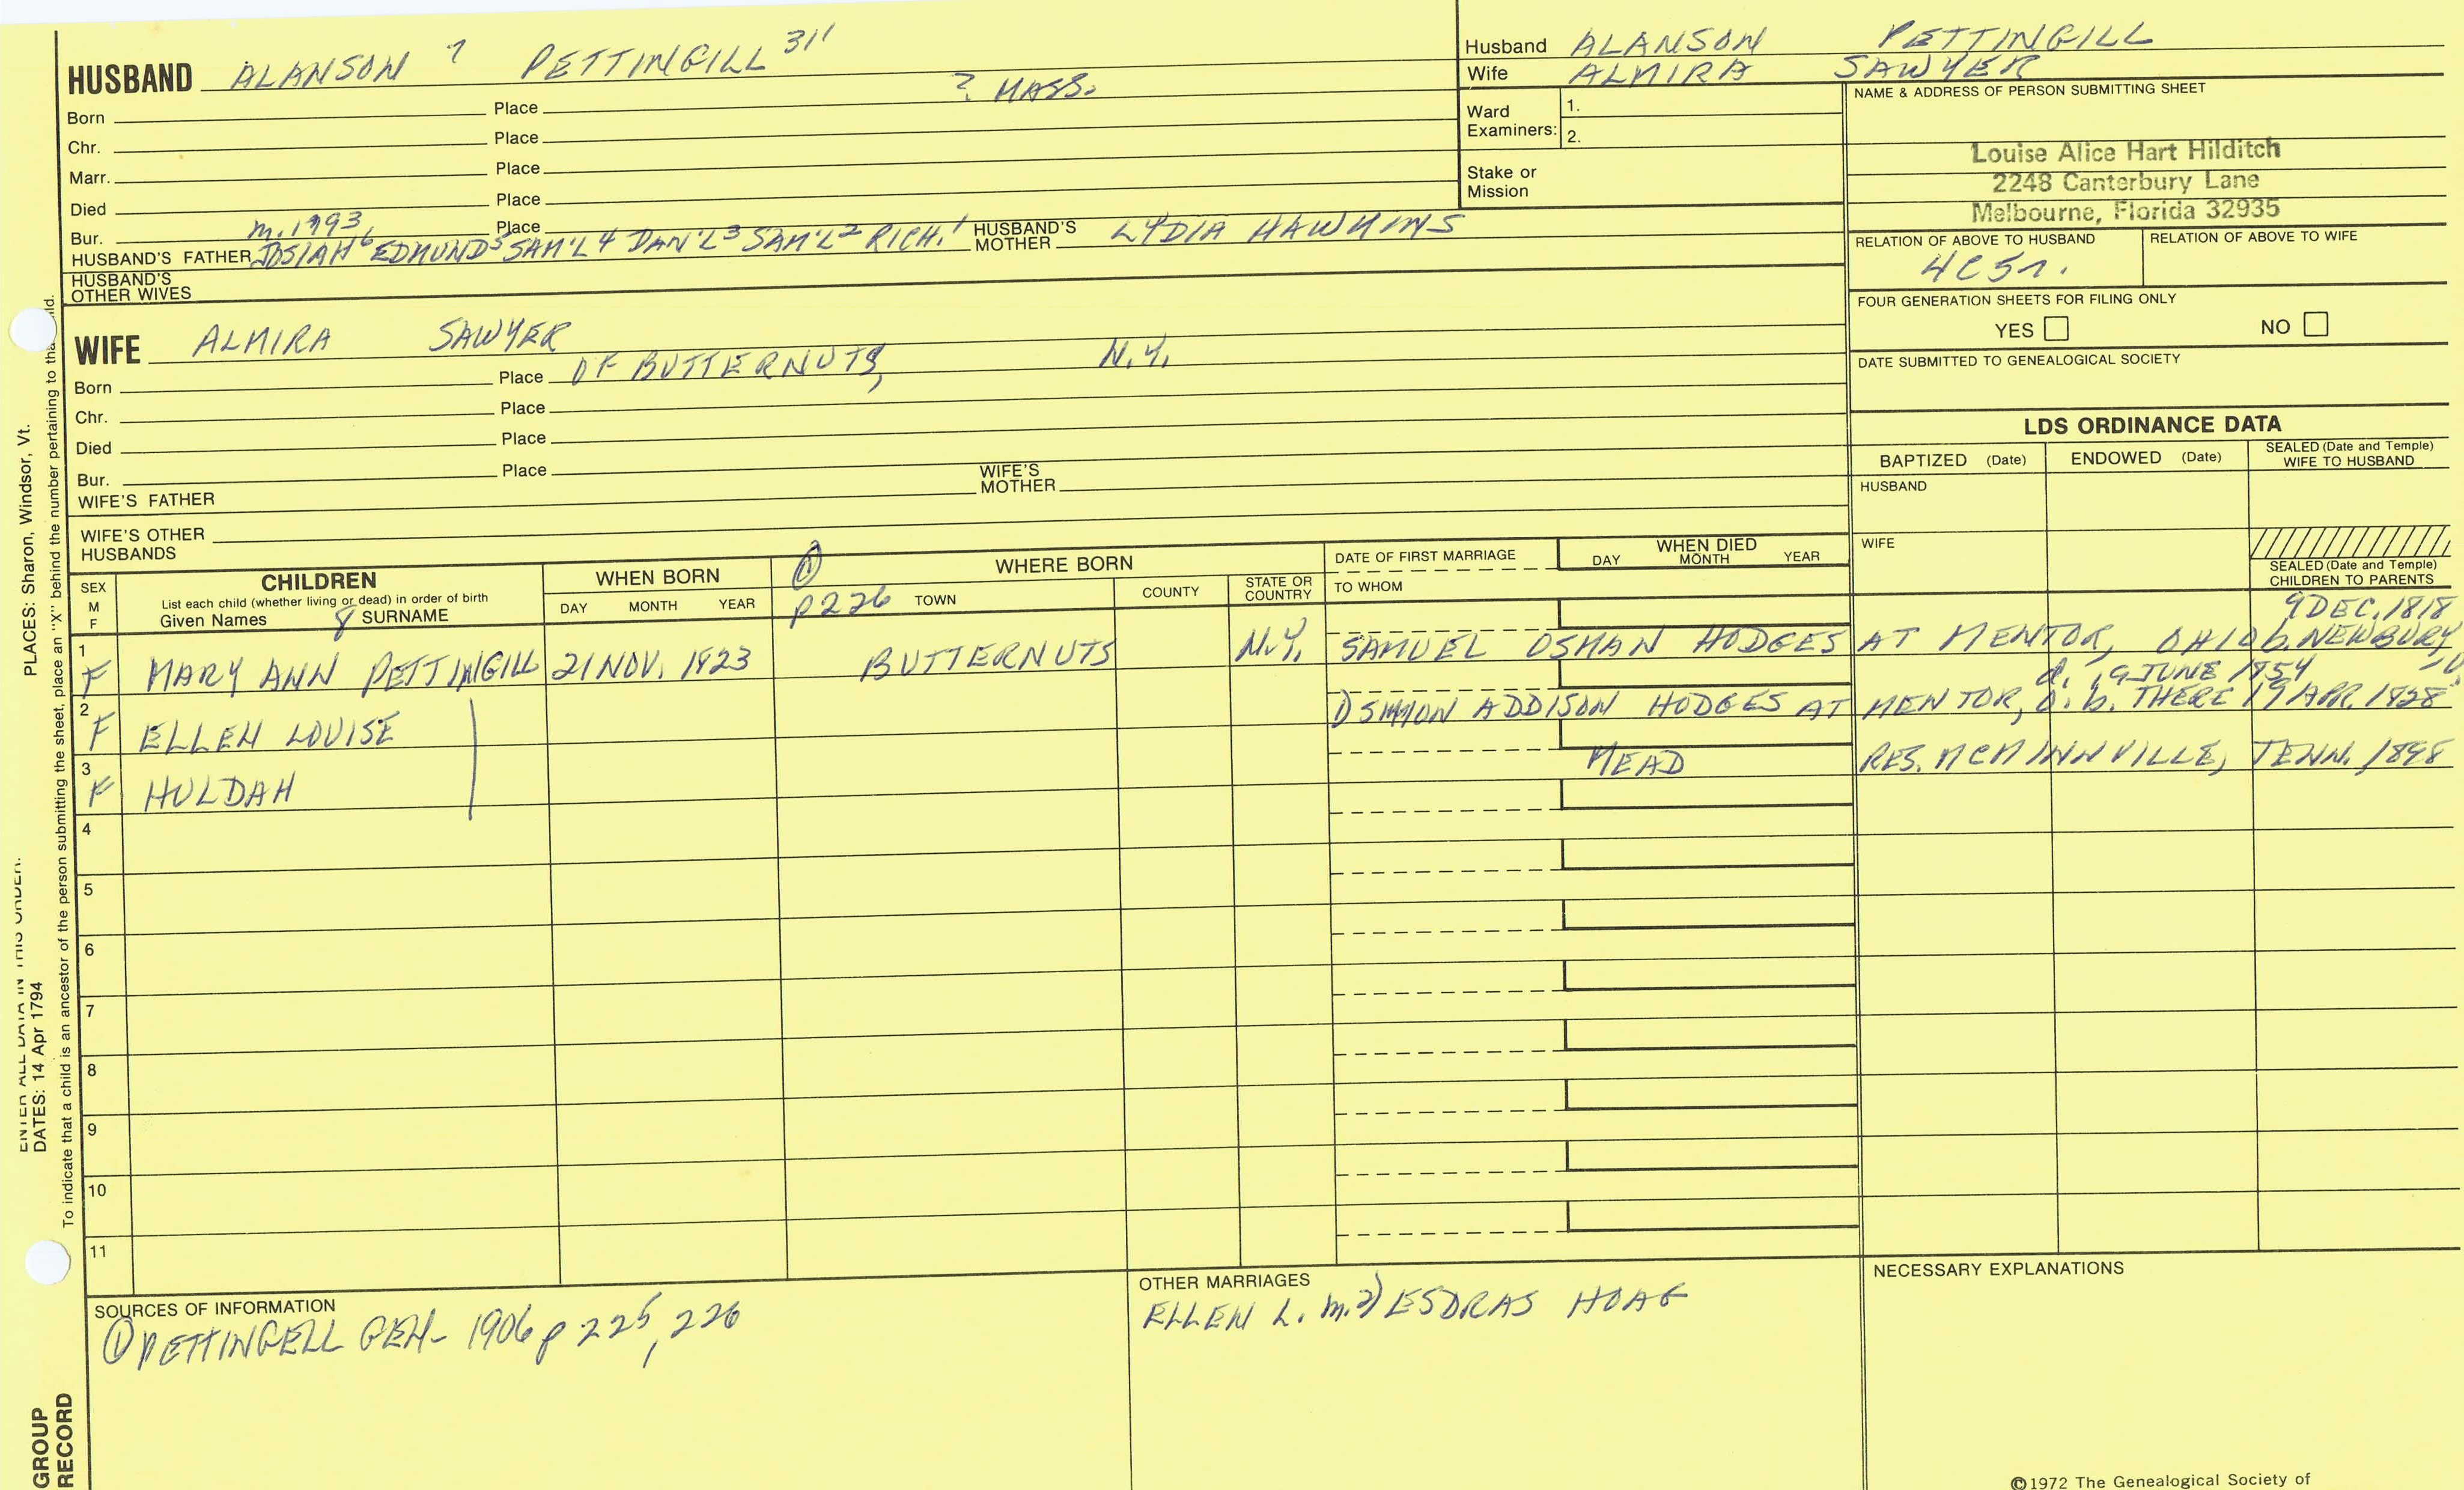 HUSBAND ALANSON 7 PETTINGILL 311
Born Place ? MASS.
Chr. Place
Marr. Place
Died Place
Bur. Place
m. 1793
HUSBAND'S FATHER JOSIAH6 EDMUND5 SAM'L4 DAN'L3 SAM'L2 RICH.1 HUSBAND'S MOTHER LYDIA HAWKINS
HUSBAND'S OTHER WIVES
WIFE ALMIRA SAWYER
Born Place OF BUTTERNUTS, N.Y.
Chr. Place
Died Place
Bur. Place
WIFE'S FATHER WIFE'S MOTHER
WIFE'S OTHER HUSBANDS
Husband ALANSON PETTINGILL
Wife ALMIRA SAWYER
Ward Examiners: 1.
2.
Stake or Mission
NAME & ADDRESS OF PERSON SUBMITTING SHEET
Louise Alice Hart Hilditch
2248 Canterbury Lane
Melbourne, Florida 32935
RELATION OF ABOVE TO HUSBAND RELATION OF ABOVE TO WIFE
4C5r.
FOUR GENERATION SHEETS FOR FILING ONLY
YES NO
DATE SUBMITTED TO GENEALOGICAL SOCIETY
LDS ORDINANCE DATA
BAPTIZED (Date) ENDOWED (Date) SEALED (Date and Temple) WIFE TO HUSBAND
HUSBAND
WIFE
SEALED (Date and Temple) CHILDREN TO PARENTS
SEX M F
CHILDREN
List each child (whether living or dead) in order of birth
Given Names 8 SURNAME
WHEN BORN
DAY MONTH YEAR
1
p 226
WHERE BORN
TOWN COUNTY STATE OR COUNTRY
DATE OF FIRST MARRIAGE
TO WHOM
WHEN DIED
DAY MONTH YEAR
9 DEC. 1818
1 F MARY ANN PETTINGILL 21 NOV. 1823 BUTTERNUTS N.Y. SAMUEL OSMAN HODGES AT MENTOR, OHIO b. NEWBURY
d. 19 JUNE 1854
2 F ELLEN LOUISE 1) SIMON ADDISON HODGES AT MENTOR, O. b. THERE 19 APR. 1828
3 F HULDAH MEAD RES. MCMINNVILLE, TENN. 1898
4
5
6
7
8
9
10
11
SOURCES OF INFORMATION
1 PETTINGELL GEN- 1906 p 225, 226
OTHER MARRIAGES
ELLEN L. m. 2) ESDRAS HOAG
NECESSARY EXPLANATIONS
©1972 The Genealogical Society of
PLACES: Sharon, Windsor, Vt.
ENTER ALL DATA IN THIS ORDER:
DATES: 14 Apr 1794
To indicate that a child is an ancestor of the person submitting the sheet, place an "X" behind the number pertaining to that child.
GROUP
RECORD